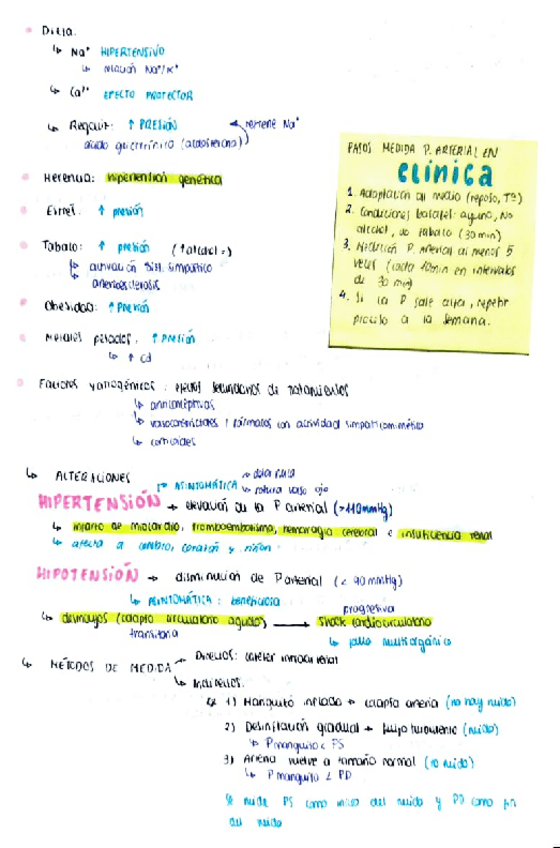 • Dieta.
↳ Na⁺ HIPERTENSIVO
↳ relación Na⁺/K⁺
↳ Ca²⁺ EFECTO PROTECTOR
↳ Regaliz: ↑ PRESIÓN ← retiene Na⁺
ácido glicirrínico (aldosterona)
• Herencia: hipertensión genética
• Estrés. ↑ presión
• Tabaco: ↑ presión (↑alcohol =)
↳ activación sist. simpático
↳ arterioesclerosis
• Obesidad: ↑ Presión
• Metales pesados. ↑ PRESIÓN
↳ ↑ Cd
• Factores yatrogénicos: efectos secundarios de tratamientos
↳ anticonceptivos
↳ vasoconstrictores / fármacos con actividad simpaticomimética
↳ corticoides
PASOS MEDIDA P. ARTERIAL EN
clínica
1. Adaptación al medio (reposo, Tª)
2. Condiciones basales: ayuno, No
alcohol, no tabaco (30 min)
3. Medición P. Arterial al menos 5
veces (cada 10min en intervalos
de 30 min)
4. Si la P sale alta, repetir
proceso a la semana.
↳ ALTERACIONES
ASINTOMÁTICA → dolor
↳ rotura vaso ojo
HIPERTENSIÓN → elevación de la P arterial (>140mmHg)
↳ infarto de miocardio, tromboembolismo, hemorragia cerebral e insuficiencia renal
↳ afecta a cerebro, corazón y riñón
HIPOTENSIÓN → disminución de P arterial (< 90 mmHg)
↳ ASINTOMÁTICA: beneficiosa
↳ desmayos (colapso circulatorio agudo) → shock cardiocirculatorio
transitoria
progresiva
↳ fallo multiorgánico
↳ MÉTODOS DE MEDIDA → Directos: catéter intraarterial
↳ Indirectos.
1) Manguito inflado → colapsa arteria (no hay ruido)
2) Desinflación gradual → flujo turbulento (ruido)
↳ P manguito < PS
3) Arteria vuelve a tamaño normal (no ruido)
↳ P manguito < PD
Se mide PS como inicio del ruido y PD como fin
del ruido